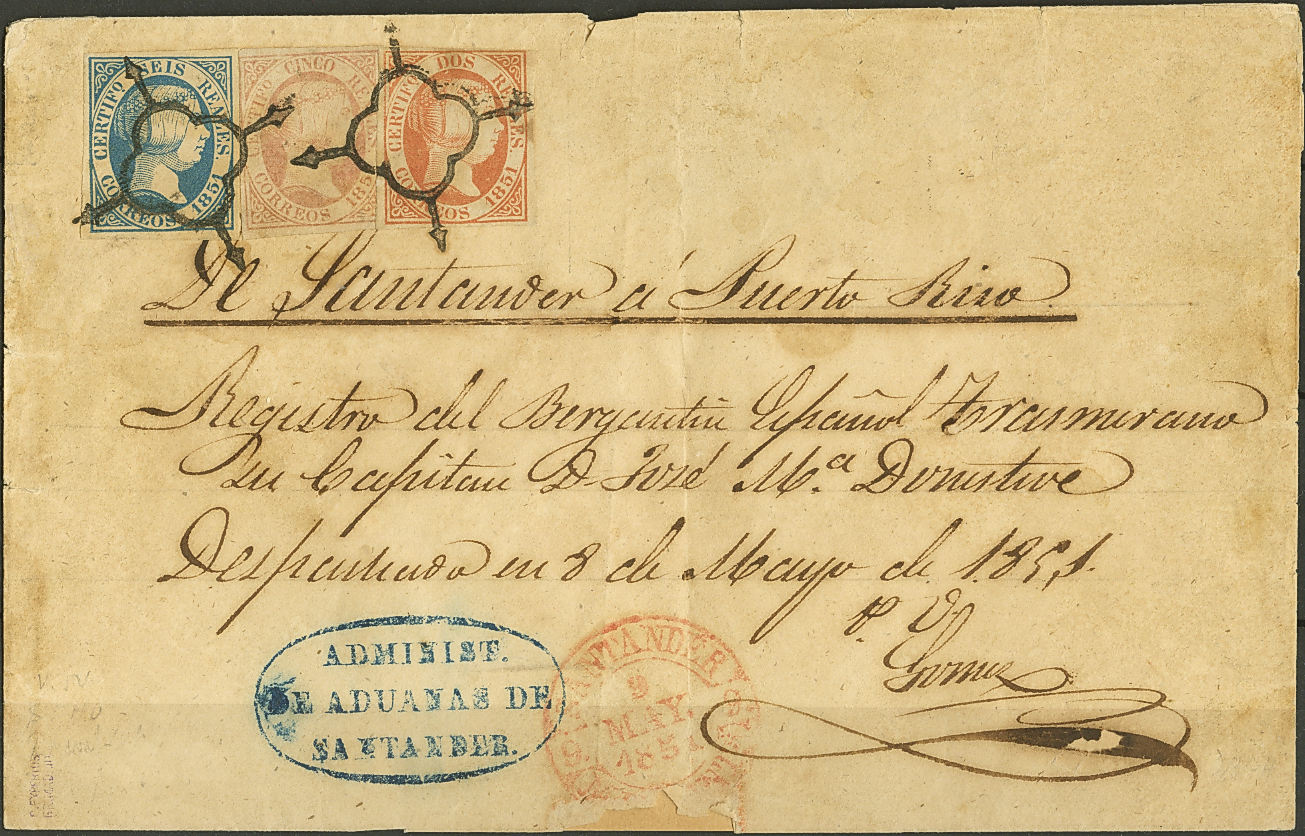 CERTIFO SEIS REALES.
CORREOS 1851
CINCO
CORREOS 185
CERTIFO DOS REALES.
1851
De Santander á Puerto Rico.
Registro del Bergantin Español Trasmerano
su Capitan D José Mª Donesteve
Despachado en 8 de Mayo de 1851.
P. V.
Gomez
ADMINIST.
DE ADUANAS DE
SANTANDER.
SANTANDER
9
MAY.
1851